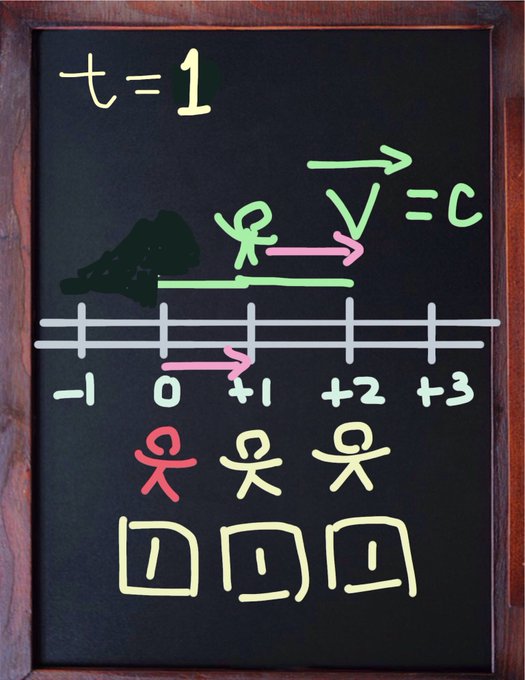 t = 1
V = C
-1 0 +1 +2 +3
1 1 1